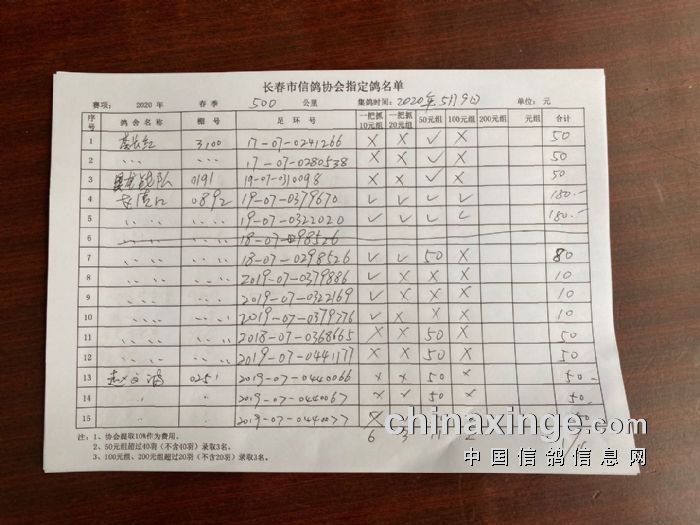 长春市信鸽协会指定鸽名单
赛项: 2020年 春季 500 公里 集鸽时间: 2020年5月9日 单位: 元
序号 鸽会名称 棚号 足环号 一把抓10元组 一把抓20元组 50元组 100元组 200元组 元组 合计
1 3100 17-07-0241266 X X ✓ X 50
2 〃 〃 17-07-0280538 X X ✓ X 50
3 战队 0191 19-07-0310098 X X ✓ X 50
4 0892 19-07-0379670 ✓ ✓ ✓ ✓ 180.-
5 〃 〃 19-07-0322020 ✓ ✓ ✓ ✓ 180.-
6 〃 〃 18-07-0298526
7 〃 〃 18-07-0298526 ✓ ✓ 50 X 80
8 〃 〃 2019-07-0379886 ✓ X X X 10
9 〃 〃 2019-07-0322169 ✓ X X X 10
10 〃 〃 2019-07-0379776 ✓ X X X 10
11 〃 〃 2018-07-0368665 X X 50 X 50
12 〃 〃 2019-07-0441177 X X 50 X 50
13 0251 2019-07-0440066 X X 50 X 50-
14 〃 〃 2019-07-0440067 X X 50 X 50-
15 〃 〃 2019-07-0440077 X 50-
6 3
注: 1、协会提取10%作为费用。
2、50元组超过40羽（不含40羽）录取3名。
3、100元组、200元组超过20羽（不含20羽）录取3名。
chinaxinge.com
中国信鸽信息网